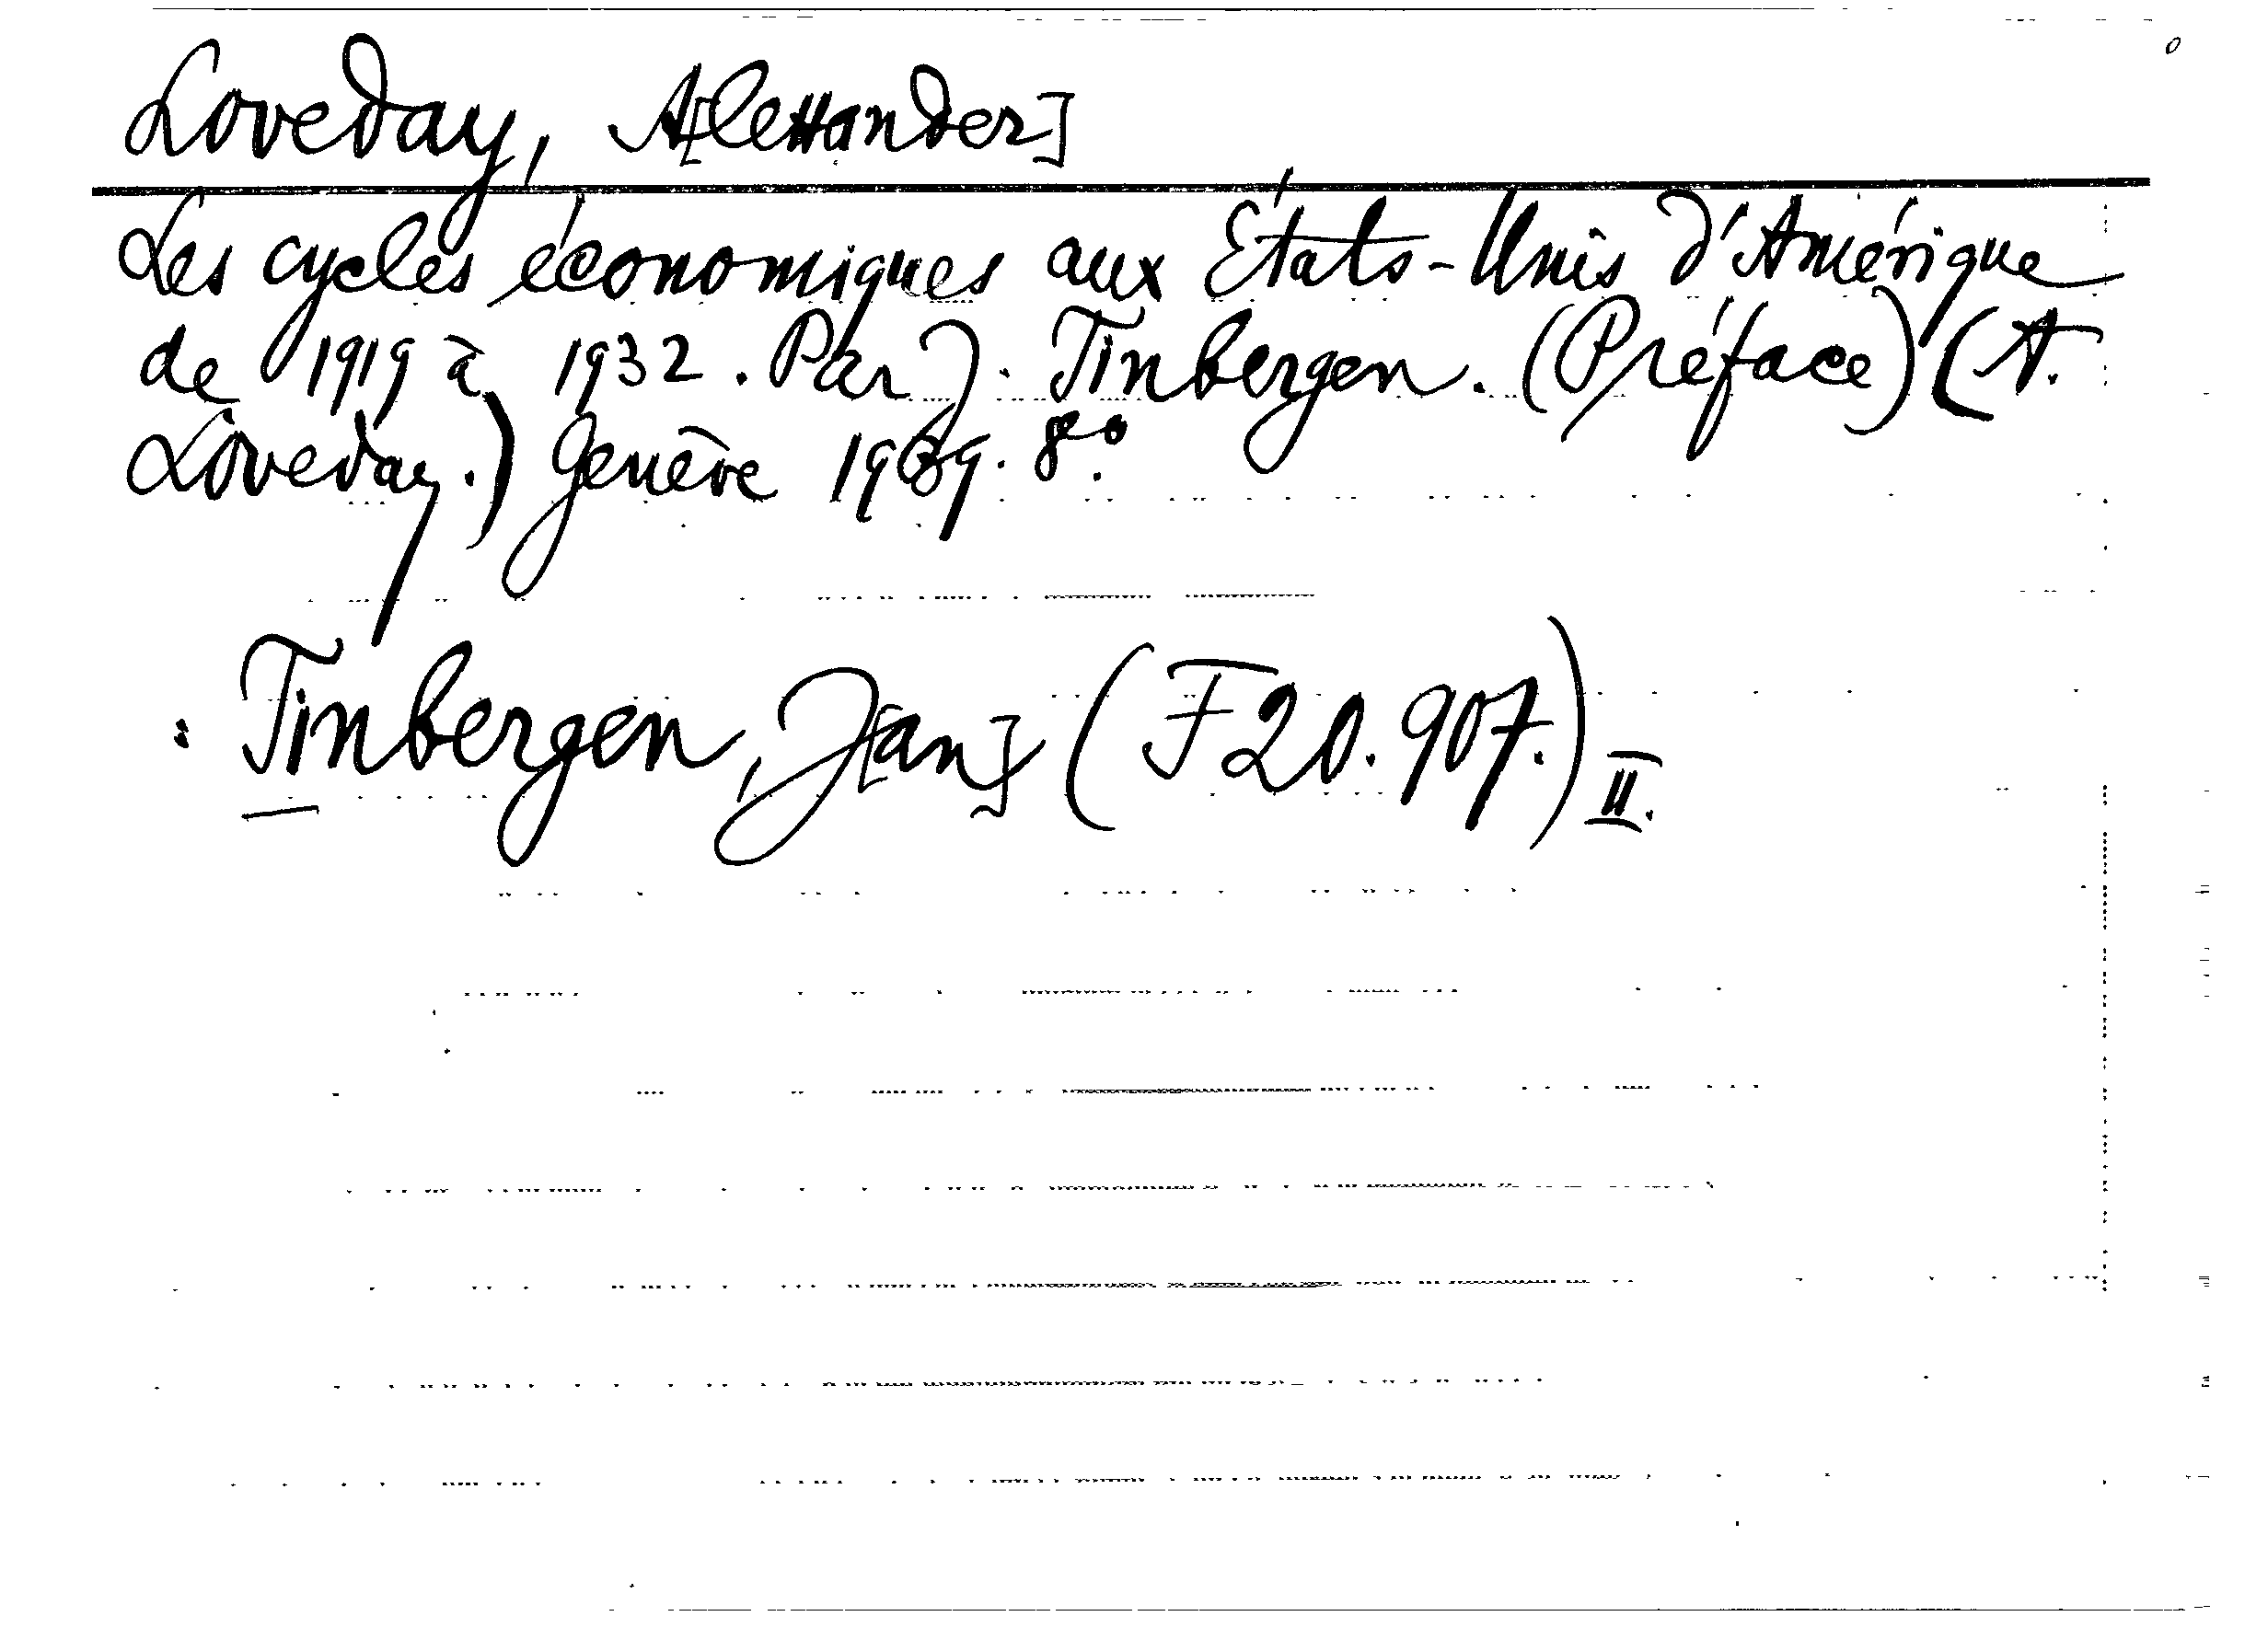 Loveday, A[lexander]
Les cycles économiques aux États-Unis d'Amérique
de 1919 à 1932. Par J. Tinbergen. (Préface) (A.
Loveday.) Genève 1939. 8°.
: Tinbergen, J[an] (F 20.907.) II.